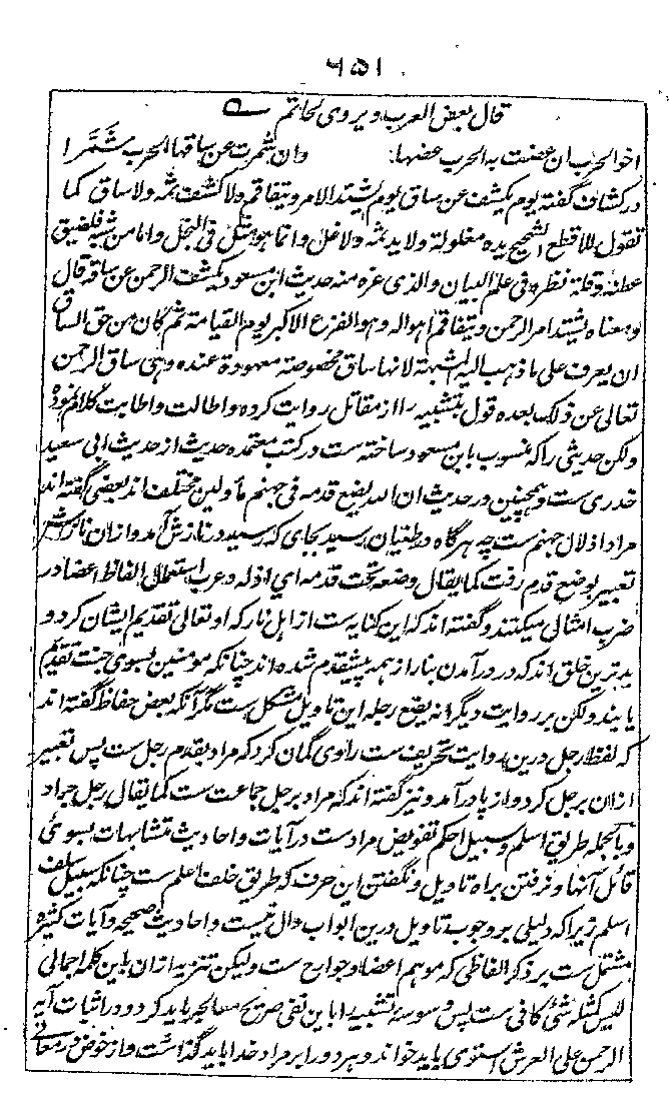 ۶۵۱
قال بعض العرب ویروی لحاتم
اخو الحرب ان عضت به الحرب عضها وان شمرت عن ساقها الحرب شَمَّرا
در کشاف گفته یوم یکشف عن ساق یوم یشتد الامر ویتفاقم ولا کشف ثمه ولا ساق کما
تقول للاقطع الشحیح یده مغلولة ولا ید ثمه ولا غل وانما هو مثل فی البخل واما من شبه فلضیق
عطنه وقلة نظره فی علم البیان والذی غره منه حدیث ابن مسعود یکشف الرحمن عن ساقه قال
ومعناه یشتد امر الرحمن ویتفاقم اهواله وهو الفزع الاکبر یوم القیامة ثم کان من حق الساق
ان یعرف علی ما ذهب الیه المشبهة لانها ساق مخصوصة معهودة عنده وهی ساق الرحمن
تعالی عن ذلک بعده قول بتشبیه را از مقاتل روایت کرده و اطالت و اطابت کلام نموده
ولکن حدیثی را که منسوب بابن مسعود ساخته ست در کتب معتمده حدیث از حدیث ابی سعید
خدری ست و همچنین در حدیث ان الله یضع قدمه فی جهنم مأولین مختلف اند بعضی گفته اند
مراد اذلال جهنم ست چه هرگاه در طغیان رسید بجای که رسید در نازش آمد و ازان
تعبیر بوضع قدم رفت کما یقال وضعه تحت قدمه ای اذله و عرب استعمال الفاظ اعضا در
ضرب امثال میکنند و گفته اند که این کنایه ست از اهل نار که او تعالی تقدیم ایشان کرد و
بدترین خلق اند که در درآمدن بنار از همه پیشقدم شده اند چنانکه مومنین بسوی جنت تقدیم
یابند ولکن بر روایت دیگر انه یضع رجله این تاویل مشکل ست مگر آنکه بعض حفاظ گفته اند
که لفظ رجل درین روایت تحریف ست راوی گمان کرد که مراد بقدم رجل ست پس تعبیر
ازان برجل کرد و از پا درآمد و نیز گفته اند که مراد برجل جماعت ست کما یقال رجل جراد
و بالجمله طریق اسلم و سبیل احکم تفویض مراد ست در آیات و احادیث متشابهات بسوی
قائل آنها و نرفتن براه تاویل و نگفتن این حرف که طریق خلف اعلم ست چنانکه سبیل سلف
اسلم زیرا که دلیلی بر وجوب تاویل درین ابواب دال نیست و احادیث صحیحه و آیات کثیره
مشتمل ست بر ذکر الفاظی که موهم اعضا و جوارح ست ولیکن تنزیه ازان باین کلمه اجمالی
لیس کمثله شئ کافی ست پس وسوسهٔ تشبیه را باین نفی صریح معالجه باید کرد و در اثبات آیه
الرحمن علی العرش استوی باید خواند و هر دو را بر مراد خدا باید گذاشت و از خوض در معانی